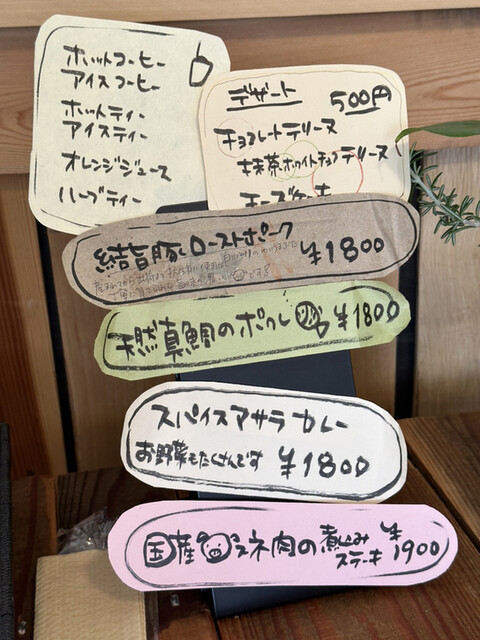 ホットコーヒー
アイスコーヒー
ホットティー
アイスティー
オレンジジュース
ハーブティー
デザート 500円
チョコレートテリーヌ
抹茶ホワイトチョコテリーヌ
チーズケーキ
結旨豚ローストポーク ¥1800
天然真鯛のポワレ ¥1800
スパイスマサラカレー
お野菜もたくさんです ¥1800
国産スネ肉の煮込み
ステーキ ¥1900